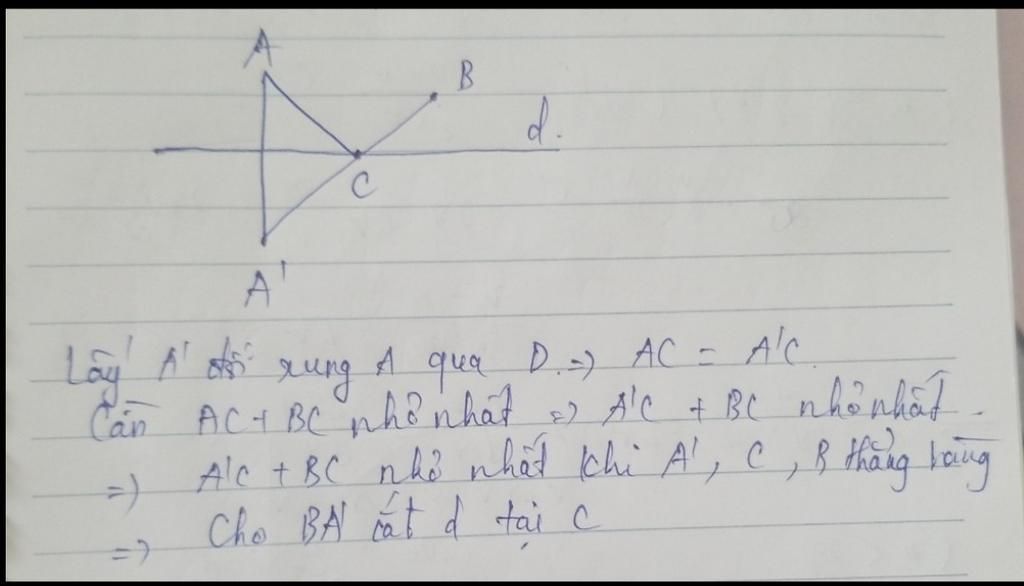 A
B
d.
C
A'
Lấy A' đối xung A qua D. => AC = A'C.
Cần AC + BC nhỏ nhất => A'C + BC nhỏ nhất.
=> A'C + BC nhỏ nhất khi A', C, B thẳng hàng
=> Cho BA' cắt d tại C